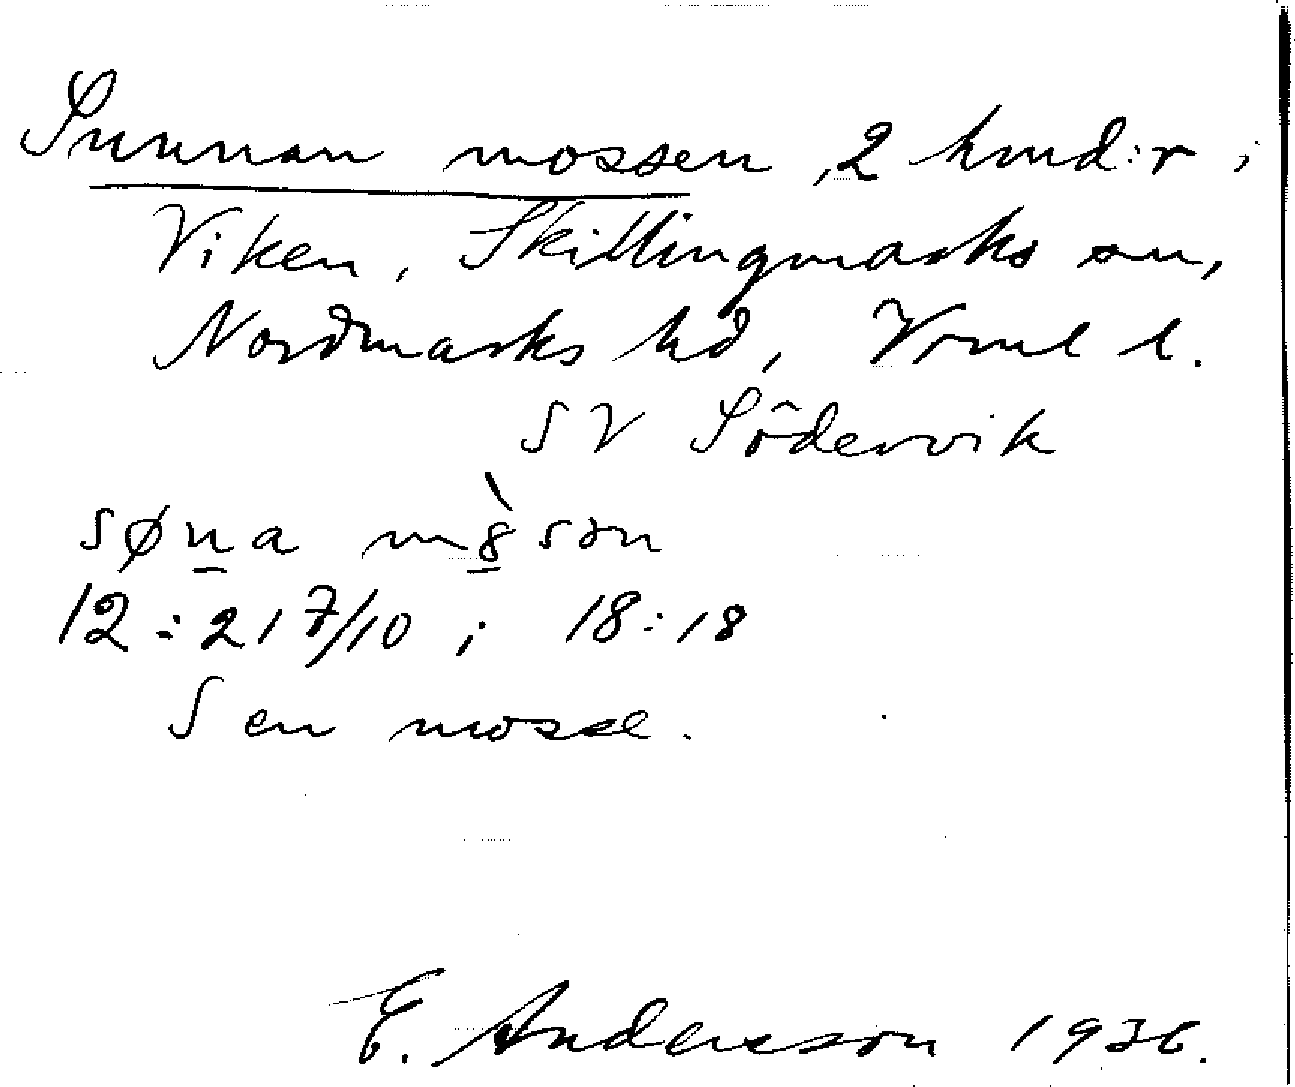 Sunnan mossen, 2 hmd:r i
Viken, Skillingmarks sn,
Nordmarks hd, Vrml l.
SV Södervik
søna mä̀son
12:217/10 ; 18:18
S en mosse.
E. Andersson 1936.